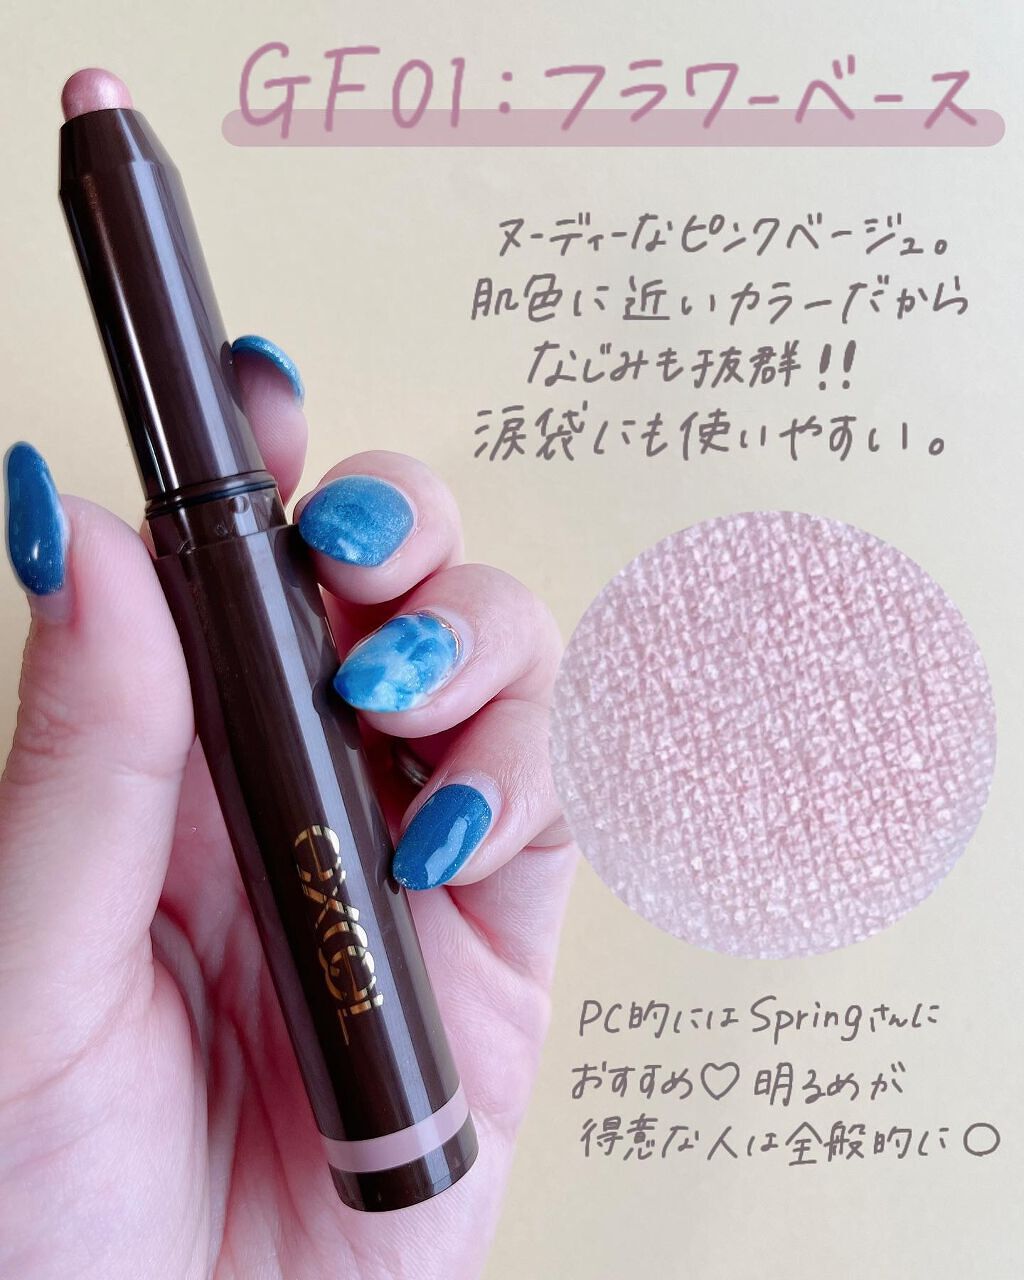 GF01:フラワーベース
ヌーディーなピンクベージュ。
肌色に近いカラーだから
なじみも抜群!!
涙袋にも使いやすい。
excel
PC的にはSpringさんに
おすすめ♡明るめが
得意な人は全般的に〇